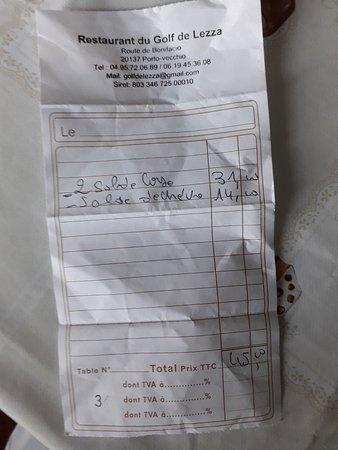 Restaurant du Golf de Lezza
Route de Bonifacio
20137 Porto-vecchio
Tel : 04.95.72.06.89 / 06.19.45.36.08
Mail: golfdelezza@gmail.com
Siret: 803 346 725 00010
Le
- 2 Salade Corse 31,00
- Salade de chèvre 14,00
Table N° Total Prix TTC 45,00
dont TVA à..............%
3 dont TVA à..............%
dont TVA à..............%